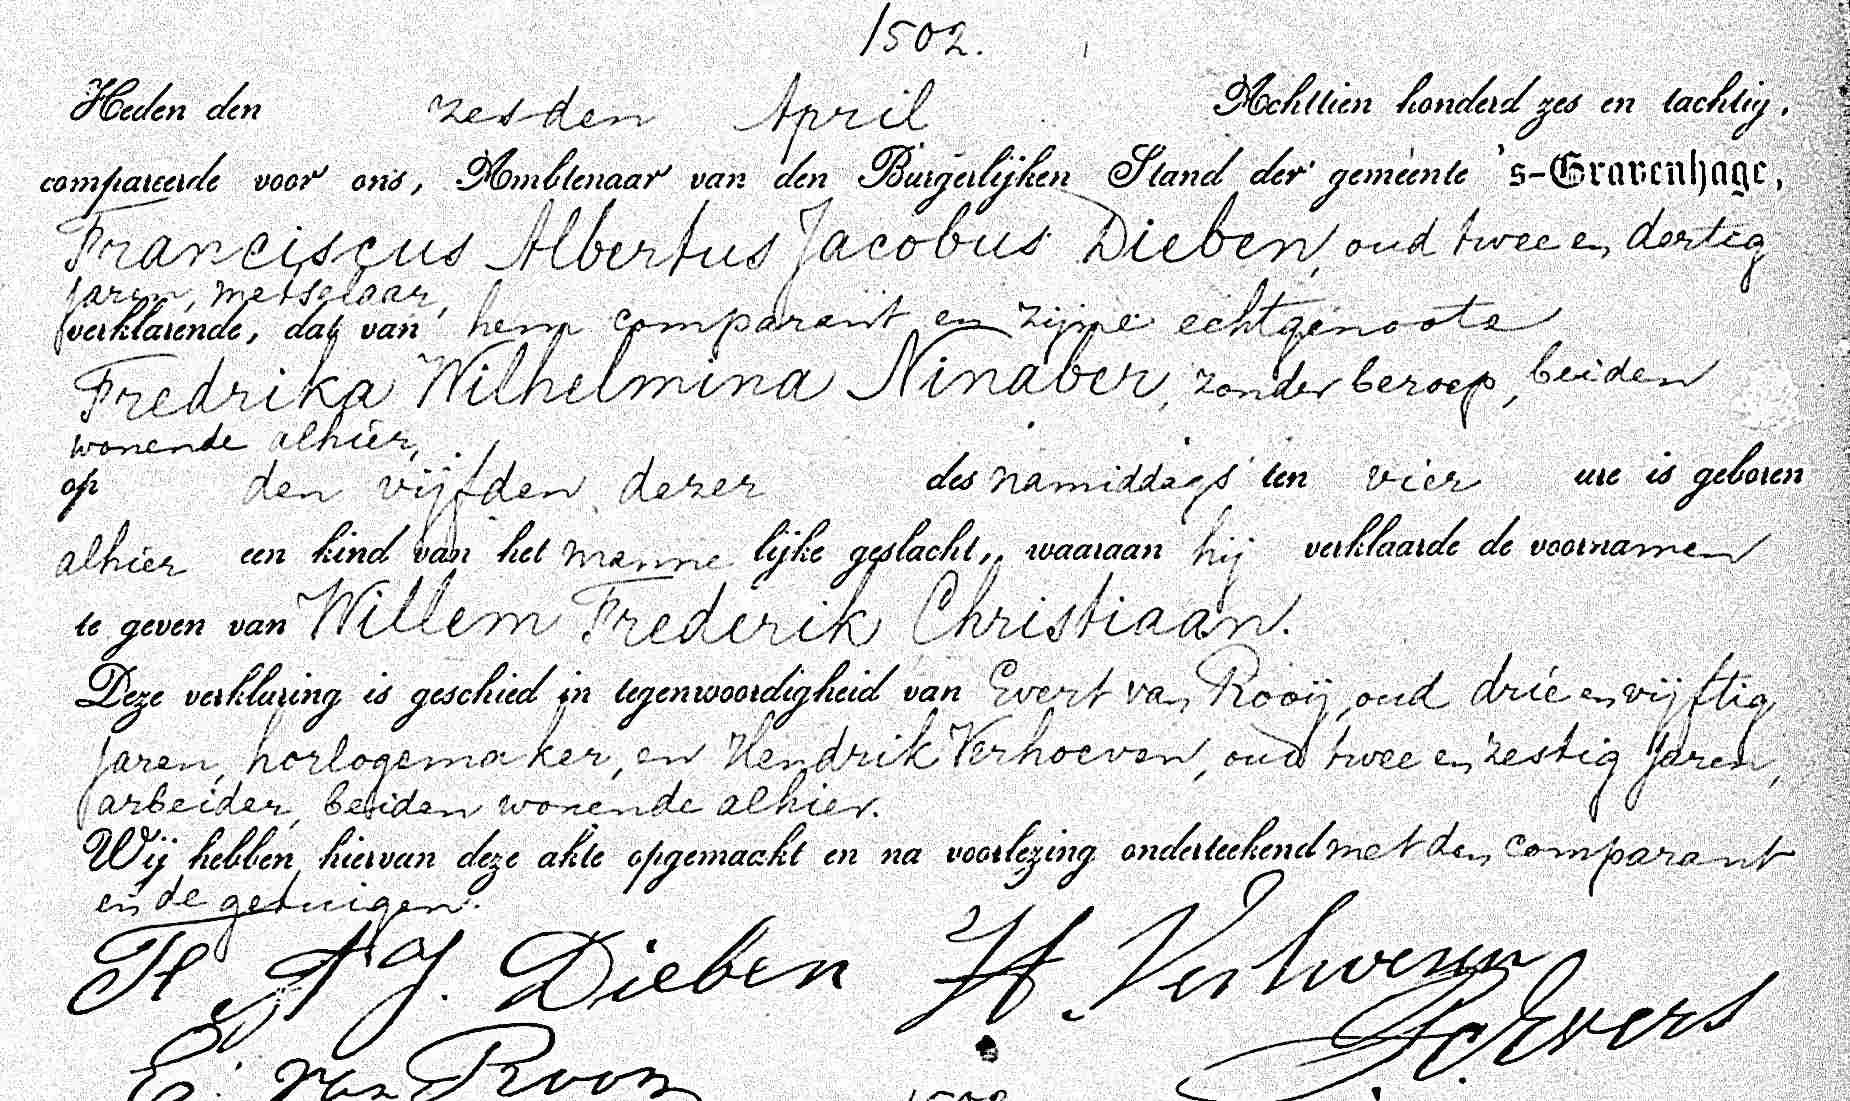 1502.
Heden den zesden April Achttien honderd zes en tachtig,
compareerde voor ons, Ambtenaar van den Burgerlijken Stand der gemeente 's-Gravenhage,
Franciscus Albertus Jacobus Dieben, oud twee en dertig
jaren, metselaar,
verklarende, dat van hem comparant en zijne echtgenoote
Fredrika Wilhelmina Ninaber, zonder beroep, beiden
wonende alhier,
op den vijfden dezer des namiddags ten vier ure is geboren
alhier een kind van het mannelijke geslacht, waaraan hij verklaarde de voornamen
te geven van Willem Frederik Christiaan.
Deze verklaring is geschied in tegenwoordigheid van Evert van Rooij, oud drie en vijftig
jaren, horlogemaker, en Hendrik Verhoeven, oud twee en zestig jaren,
arbeider, beiden wonende alhier.
Wij hebben hiervan deze akte opgemaakt en na voorlezing onderteekend met den comparant
en de getuigen.
F A J. Dieben H. Verhoeven
E. van Rooij